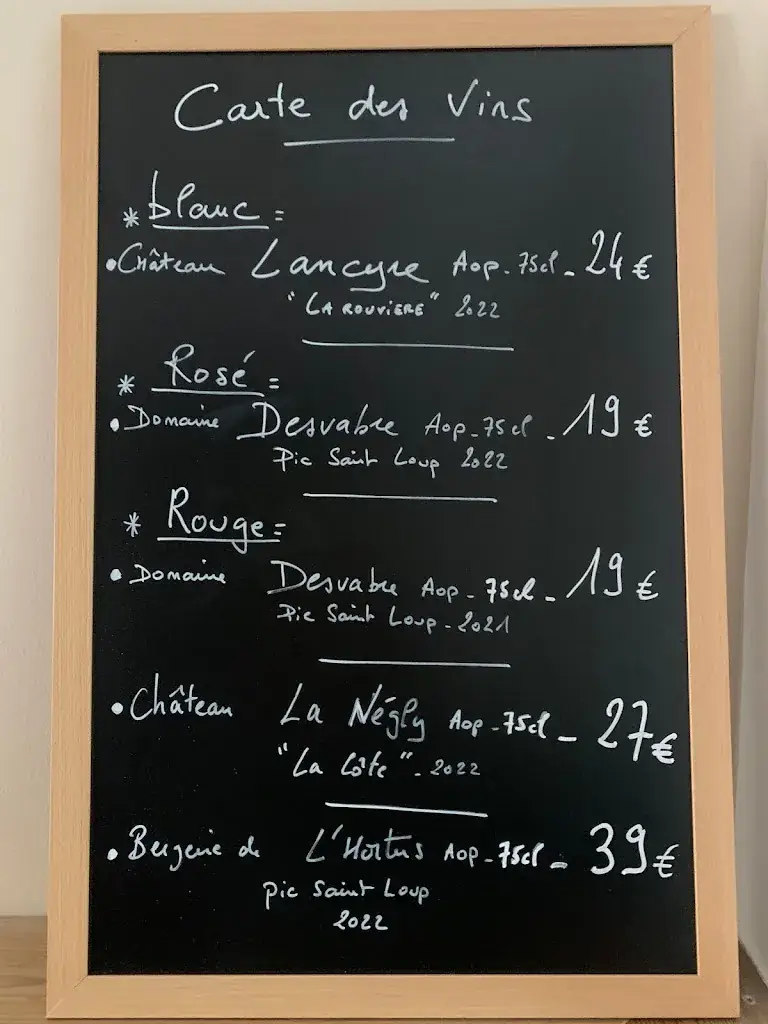 Carte des Vins
* blanc =
• Château Lancyre Aop - 75cl - 24 €
"LA ROUVIERE" 2022
* Rosé =
• Domaine Desvabre Aop - 75cl - 19 €
Pic Saint Loup 2022
* Rouge =
• Domaine Desvabre Aop - 75cl - 19 €
Pic Saint Loup - 2021
• Château La Négly Aop - 75cl - 27 €
"La Côte" - 2022
• Bergerie de L'Hortus Aop - 75cl - 39 €
pic Saint Loup
2022